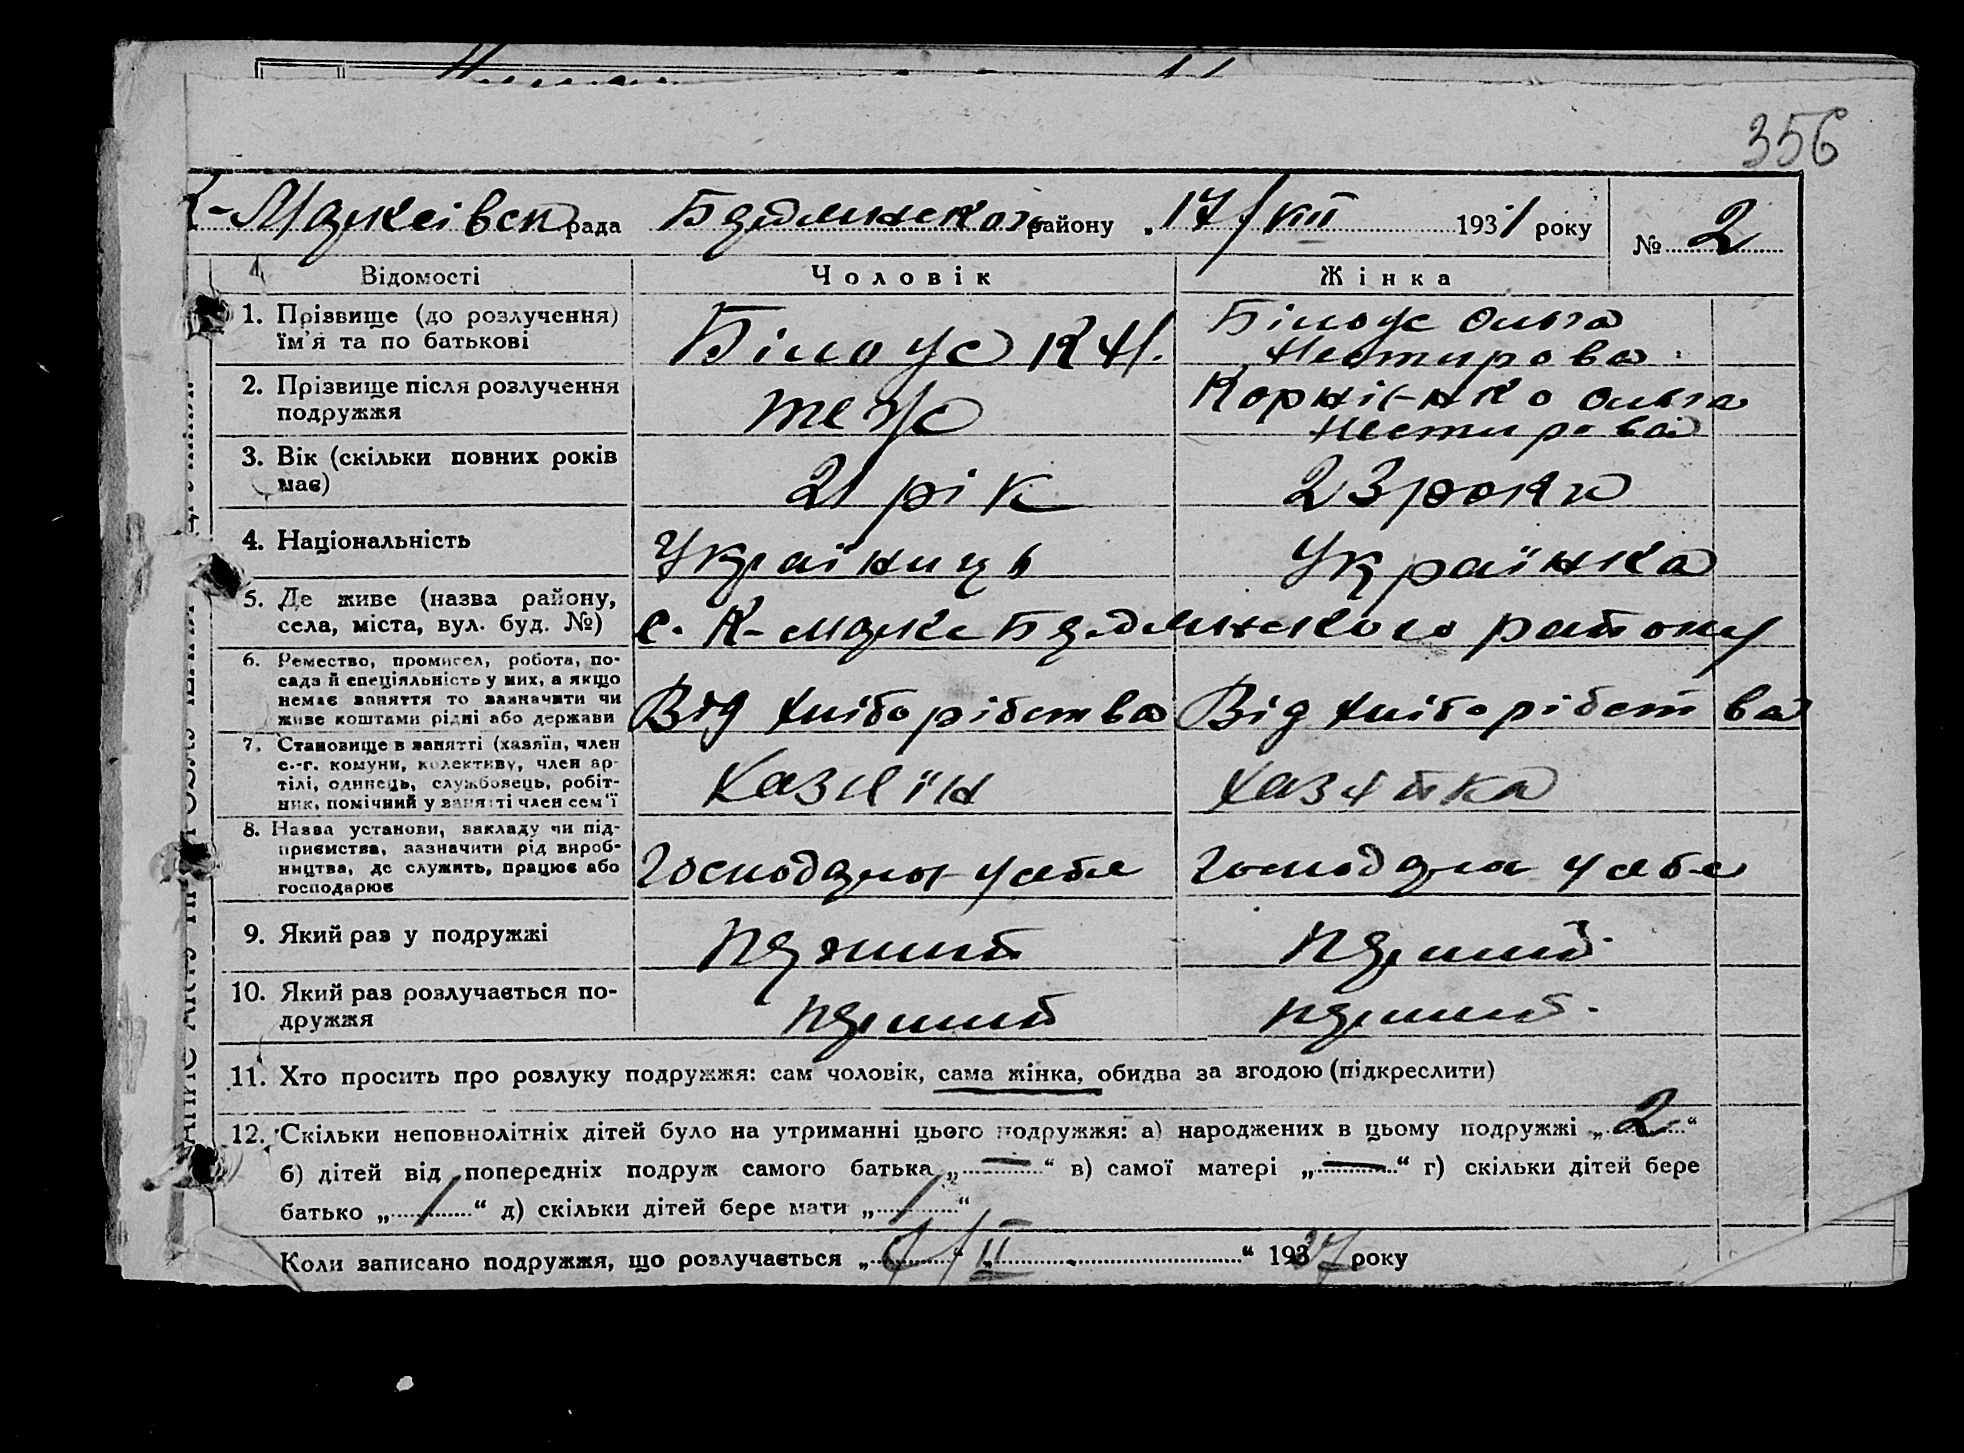 356
К-Марксівськ рада Бердянського району „17/VIII 1931 року № 2
Відомості Чоловік Жінка
1. Прізвище (до розлучення) їм'я та по батькові
Білоус К Н.
Білоус Ольга Нестирова
2. Прізвище після розлучення подружжя
теж
Корнієнко Ольга Нестирова
3. Вік (скільки повних років має)
21 рік
23 роки
4. Національність
Українець
Українка
5. Де живе (назва району, села, міста, вул. буд. №)
с. К-Маркс Бердянського району
6. Ремество, промисел, робота, по-
сада й спеціяльність у них, а якщо
немає заняття то зазначити чи
живе коштами рідні або держави
Від хліборібства
Від хліборібства
7. Становище в занятті (хазяїн, член
с.-г. комуни, колективу, член ар-
тілі, одинець, службовець, робіт-
ник, помічний у занятті член сем'ї
Хазяїн
Хазяйка
8. Назва установи, закладу чи під-
приємства, зазначити рід вироб-
ництва, де служить, працює або
господарює
у себе
у себе
9. Який раз у подружжі
перший
перший
10. Який раз розлучається по-
дружжя
перший
перший
11. Хто просить про розлуку подружжя: сам чоловік, сама жінка, обидва за згодою (підкреслити)
12. Скільки неповнолітніх дітей було на утриманні цього подружжя: а) народжених в цьому подружжі „2“
б) дітей від попередніх подруж самого батька „—“ в) самої матері „—“ г) скільки дітей бере
батько „1“ д) скільки дітей бере мати „1“
Коли записано подружжя, що розлучається „ II “ 193 року